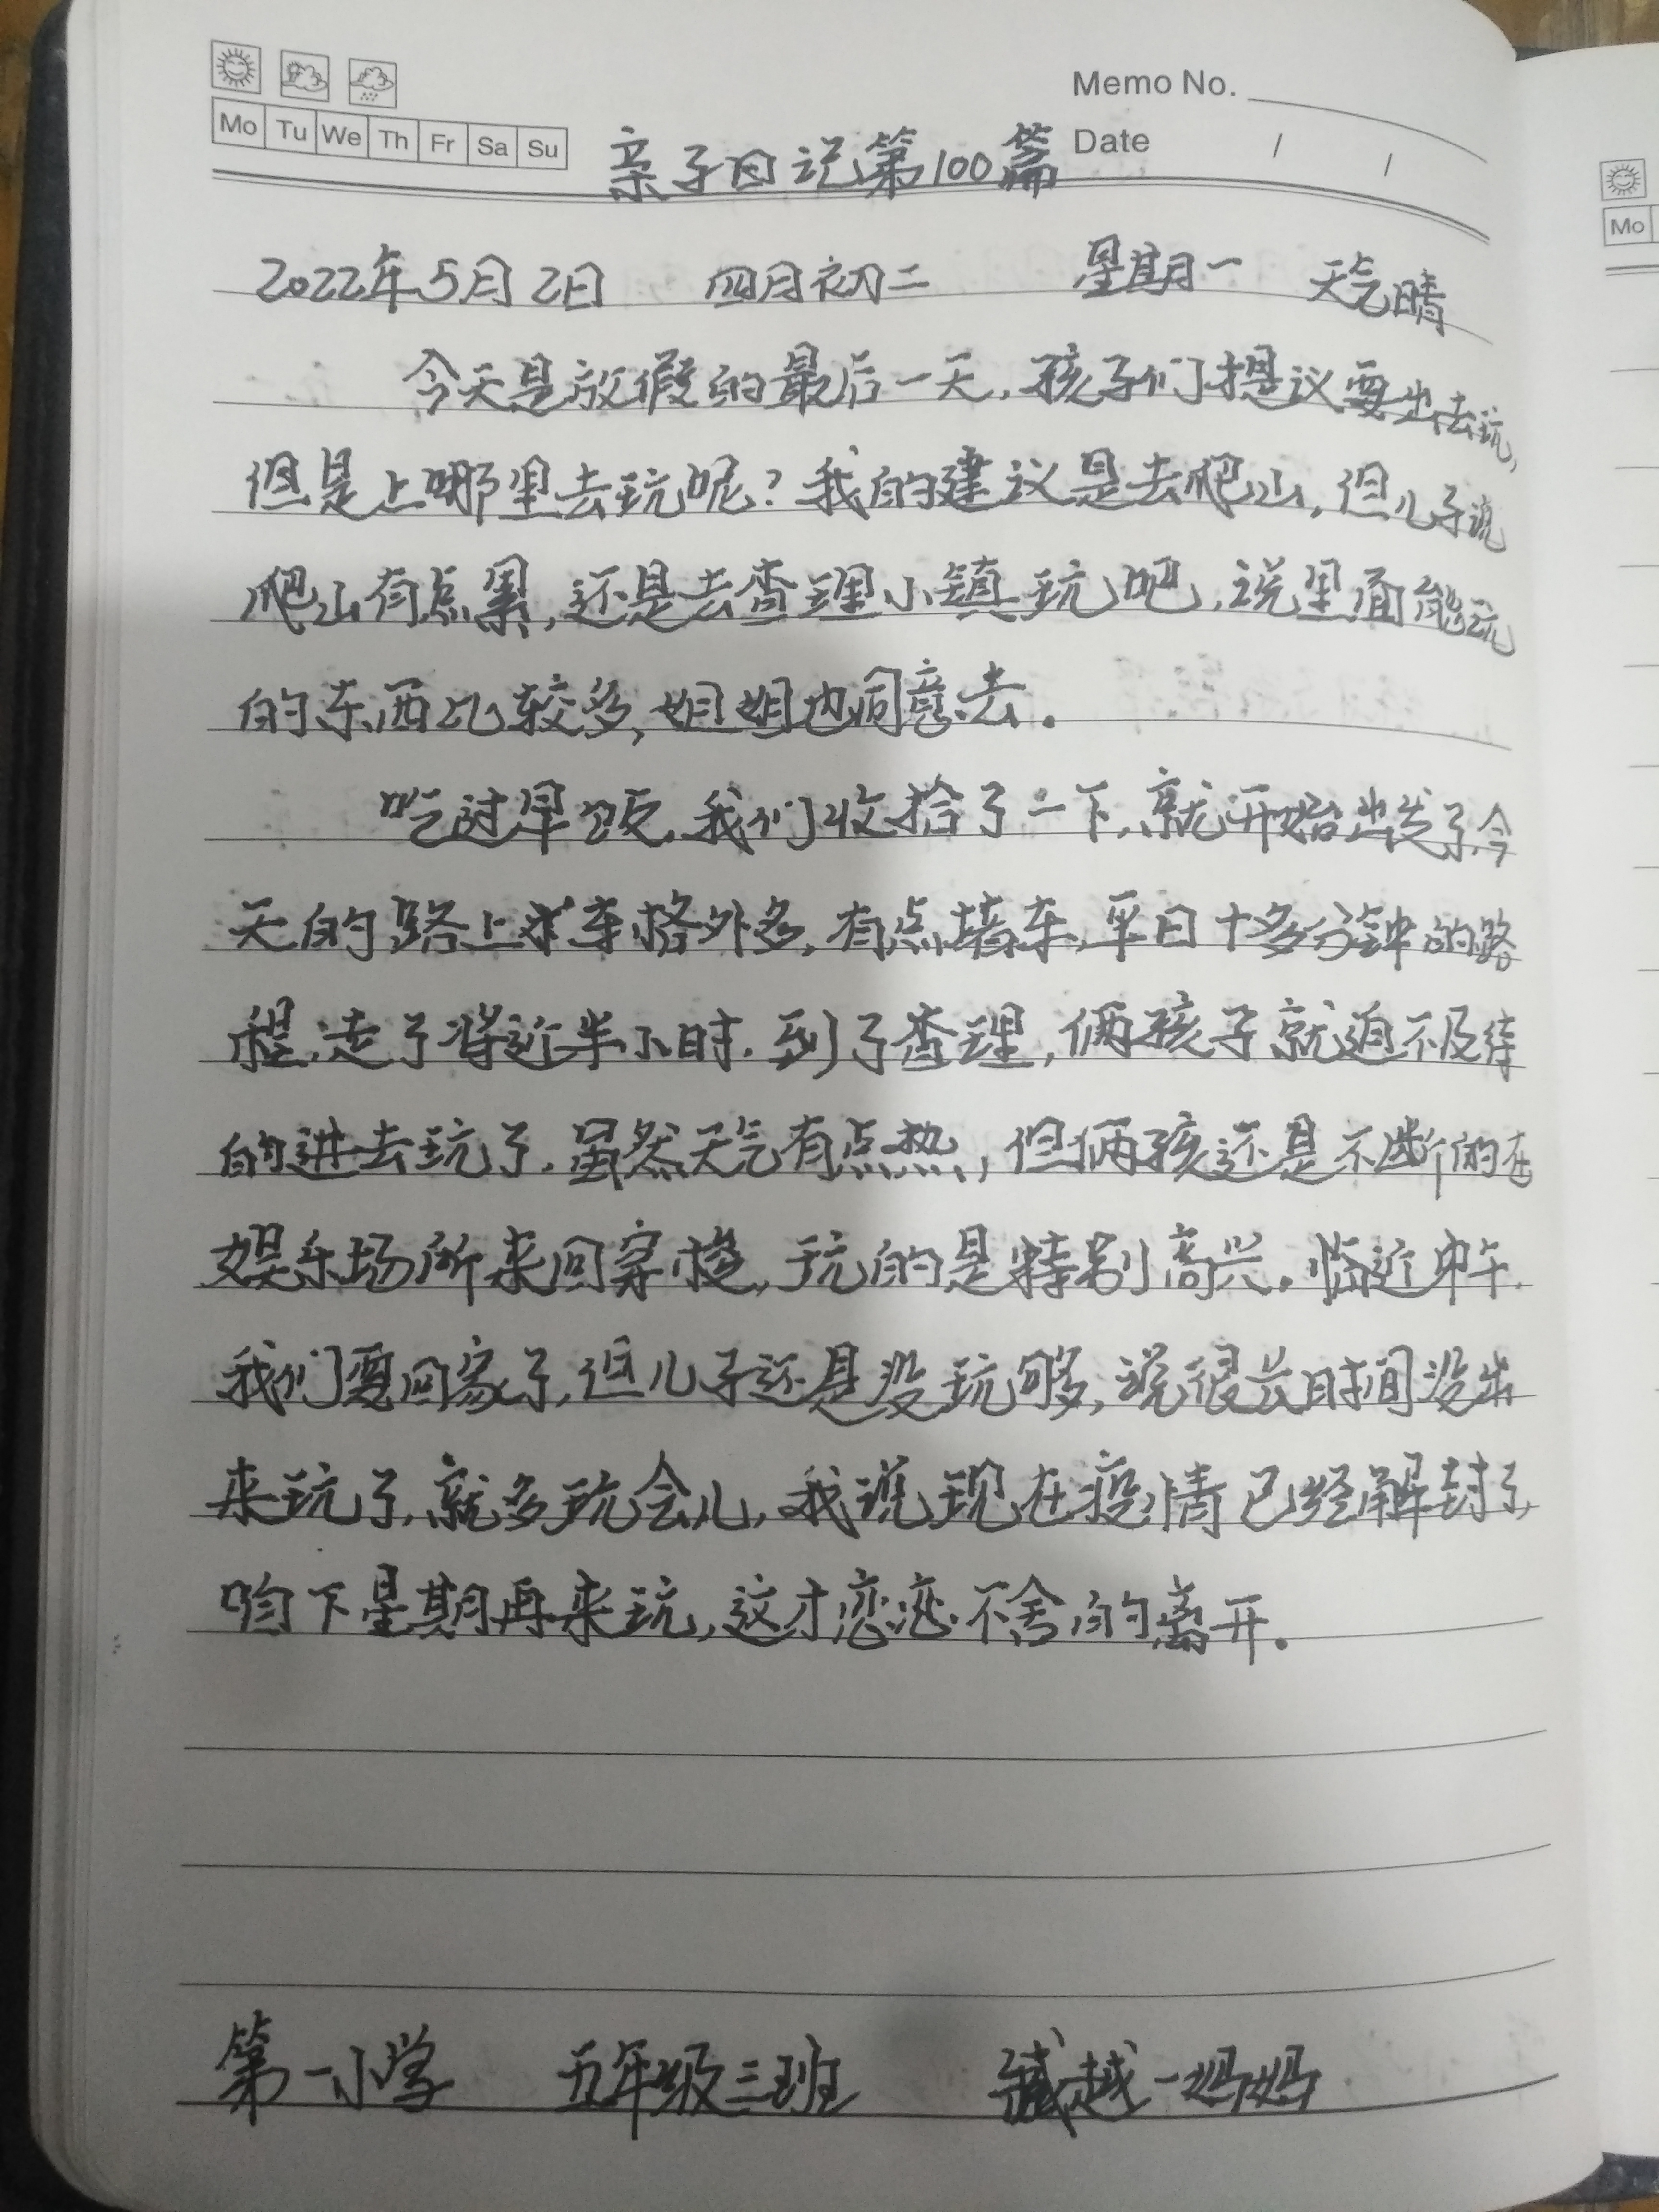 Memo No.
Mo Tu We Th Fr Sa Su
Date / /
亲子日记第100篇
2022年5月2日 四月初二 星期一 天气晴
今天是放假的最后一天,孩子们提议要出去玩,
但是上哪里去玩呢?我的建议是去爬山,但儿子说
爬山有点累,还是去查理小镇玩吧,说里面能玩
的东西比较多,姐姐也同意去。
吃过早饭,我们收拾了一下,就开始出发了,今
天的路上车格外多,有点堵车,平日十多分钟的路
程,走了将近半小时.到了查理,俩孩子就迫不及待
的进去玩了,虽然天气有点热,但俩孩还是不断的在
娱乐场所来回穿梭,玩的是特别高兴。临近中午,
我们要回家了,但儿子还是没玩够,说很长时间没出
来玩了,就多玩会儿,我说现在疫情已经解封了,
咱下星期再来玩,这才恋恋不舍的离开。
第一小学 五年级三班 臧越一妈妈
Mo